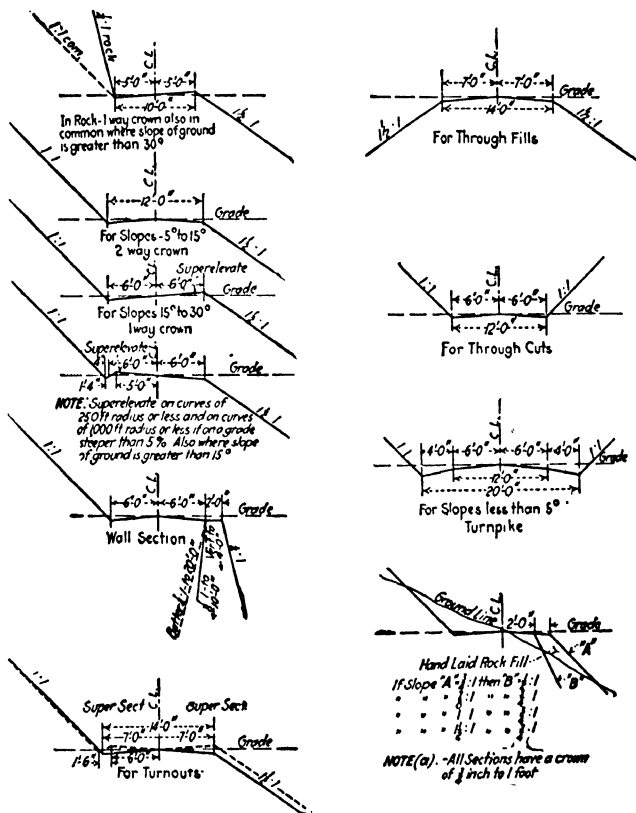 1:1 com.
1:1 rock
C.L.
5'-0" 5'-0"
10'-0"
In Rock-1 way crown also in
common where slope of ground
is greater than 30°
1½:1
1:1
C.L.
12'-0"
Grade
For Slopes -5° to 15°
2 way crown
1½:1
1:1
C.L.
Superelevate
6'-0" 6'-0"
Grade
For Slopes 15° to 30°
1 way crown
1½:1
1:1
Superelevate
C.L.
6'-0" 6'-0"
Grade
1'4" 5'-0"
1½:1
NOTE: Superelevate on curves of
250 ft radius or less and on curves
of 1000 ft radius or less if on a grade
steeper than 5% Also where slope
of ground is greater than 15°
C.L.
6'-0" 6'-0" 2'-0"
Grade
Wall Section
1:1
C.L.
Super Sect Super Sect
14'-0"
7'-0" 7'-0"
Grade
1'-6" 6'-0"
For Turnouts
1½:1
C.L.
7'-0" 7'-0"
Grade
14'-0"
1½:1
1½:1
For Through Fills
1:1
C.L.
1:1
6'-0" 6'-0"
Grade
12'-0"
For Through Cuts
1:1
C.L.
1:1
4'-0" 6'-0" 6'-0" 4'-0"
Grade
12'-0"
20'-0"
For Slopes less than 5°
Turnpike
C.L.
Ground Line
2'-0"
Grade
"A"
Hand Laid Rock Fill
"B"
If Slope "A" = :1 then "B" = :1
NOTE (a). - All Sections have a crown
of ¼ inch to 1 foot